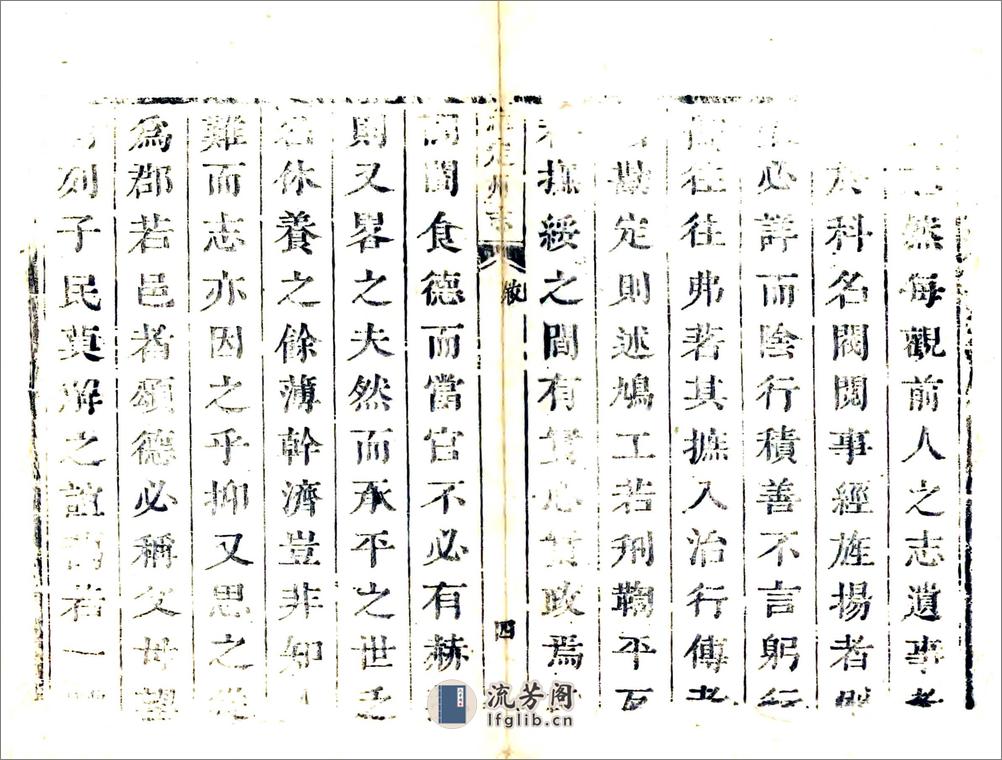 然每觀前人之志遺事
於科名閥閱事經旌揚者則
必詳而陰行積善不言躬行
往往弗著其摭入治行傳者
勘定則述鳩工若刑鞫平
撫綏之間有實心實政焉
州志
敘
四
閭食德而當官不必有赫
則又畧之夫然而承平之世
休養之餘薄幹濟豈非知
難而志亦因之乎抑又思之
爲郡若邑者頌德必稱父母
列子民莫解之誼若一
流芳阁
lfglib.cn